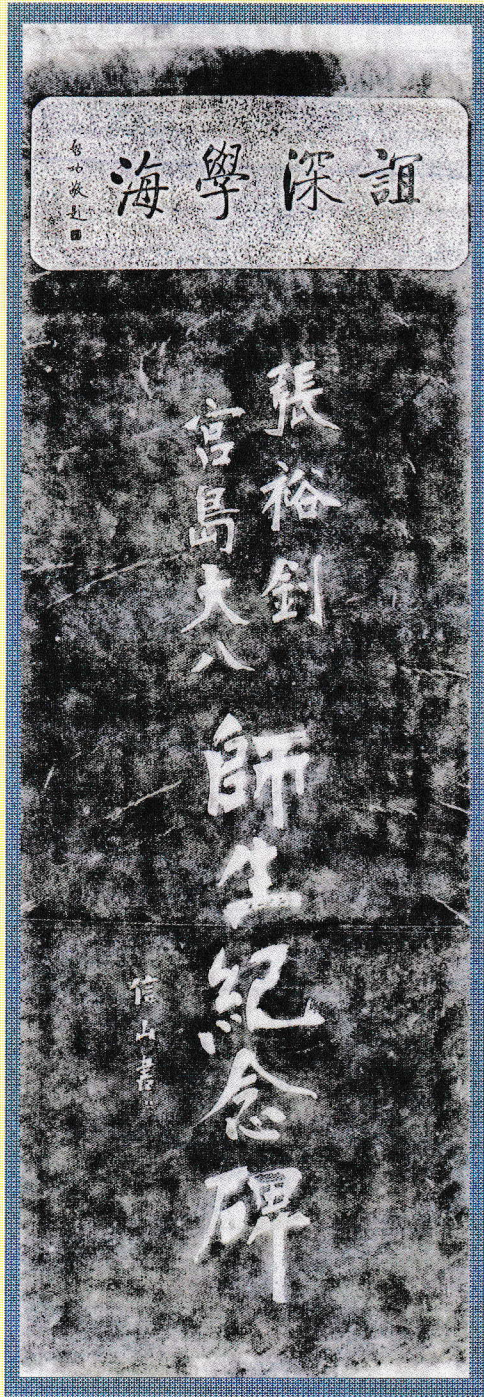 誼深學海
啓功敬題
張裕釗
宮島大八
師生紀念碑
信山書